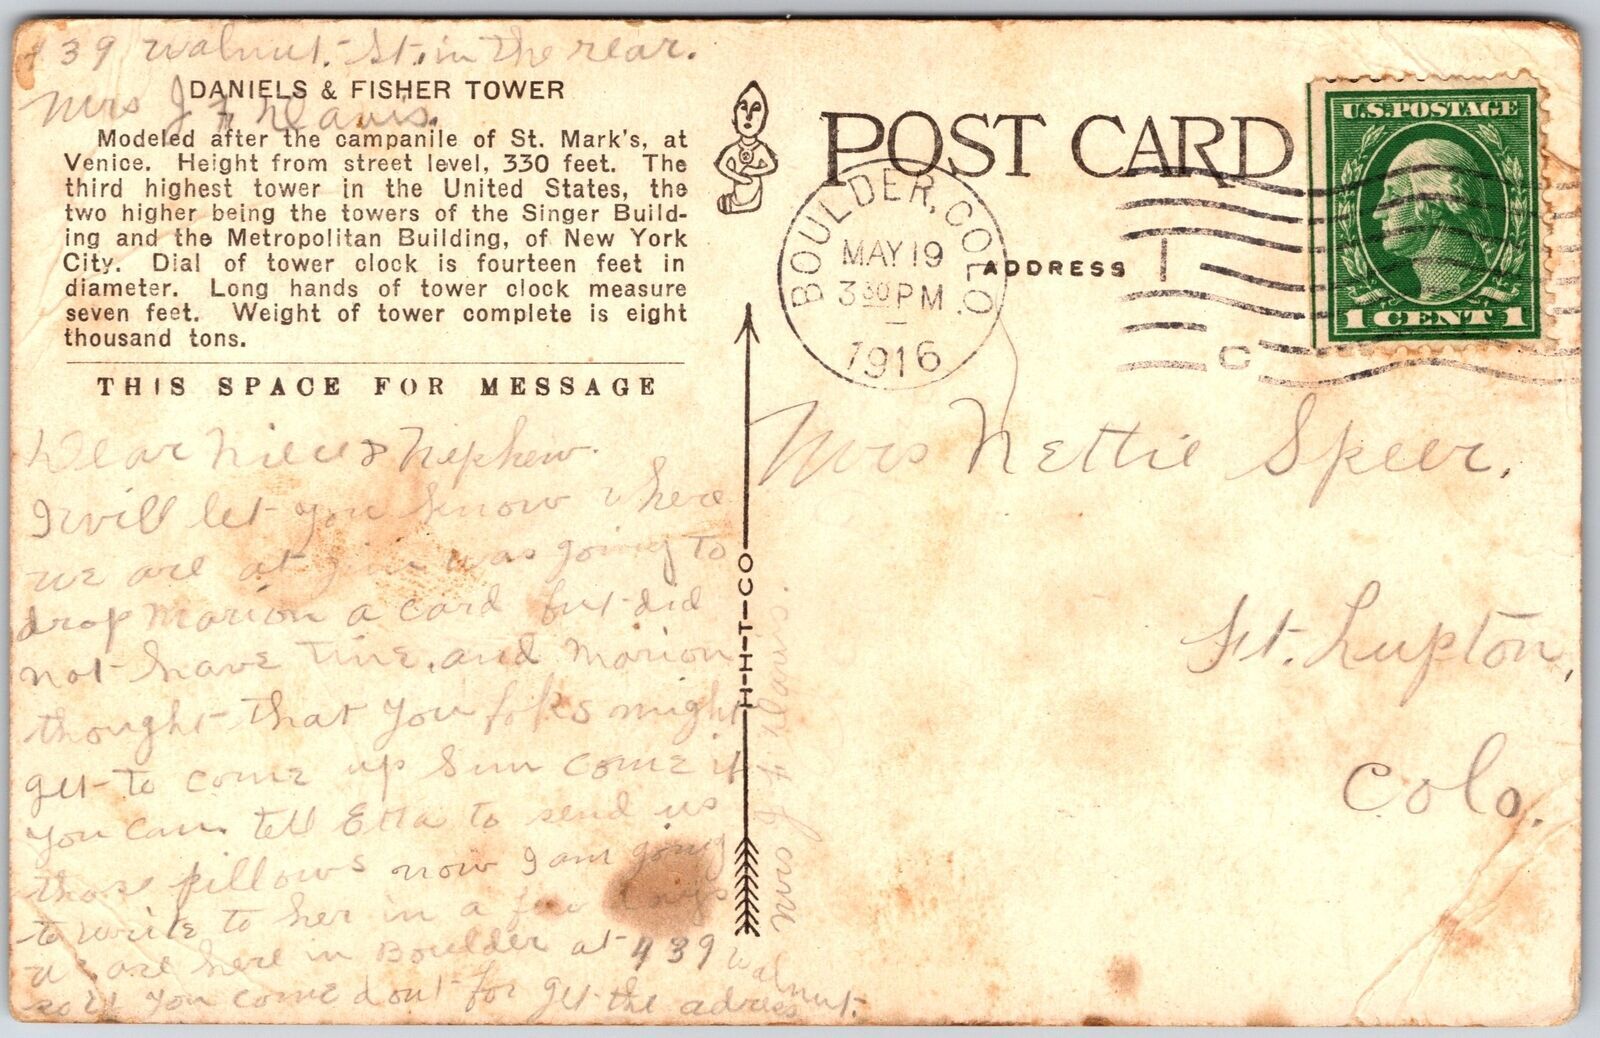 439 walnut. St. in the rear.
Mrs J F Davis.
DANIELS & FISHER TOWER
Modeled after the campanile of St. Mark's, at
Venice. Height from street level, 330 feet. The
third highest tower in the United States, the
two higher being the towers of the Singer Build-
ing and the Metropolitan Building, of New York
City. Dial of tower clock is fourteen feet in
diameter. Long hands of tower clock measure
seven feet. Weight of tower complete is eight
thousand tons.
THIS SPACE FOR MESSAGE
Dear Niece & Nephew.
I will let you know where
we are at was going to
drop Marion a card but did
not have time. and Marion
thought that you folks might
get to come up Sun come if
you can. tell Etta to send us
those pillows now I am going
to write to her in a few days
we are here in Boulder at 439 walnut.
so if you come dont for get the adress
H-H-T-CO
Mrs J. F. Davis.
POST CARD
ADDRESS
BOULDER, COLO.
MAY 19
3 30 PM
1916
1
C
U.S. POSTAGE
1 CENT 1
Mrs Nettie Speer,
Ft. Lupton,
Colo.